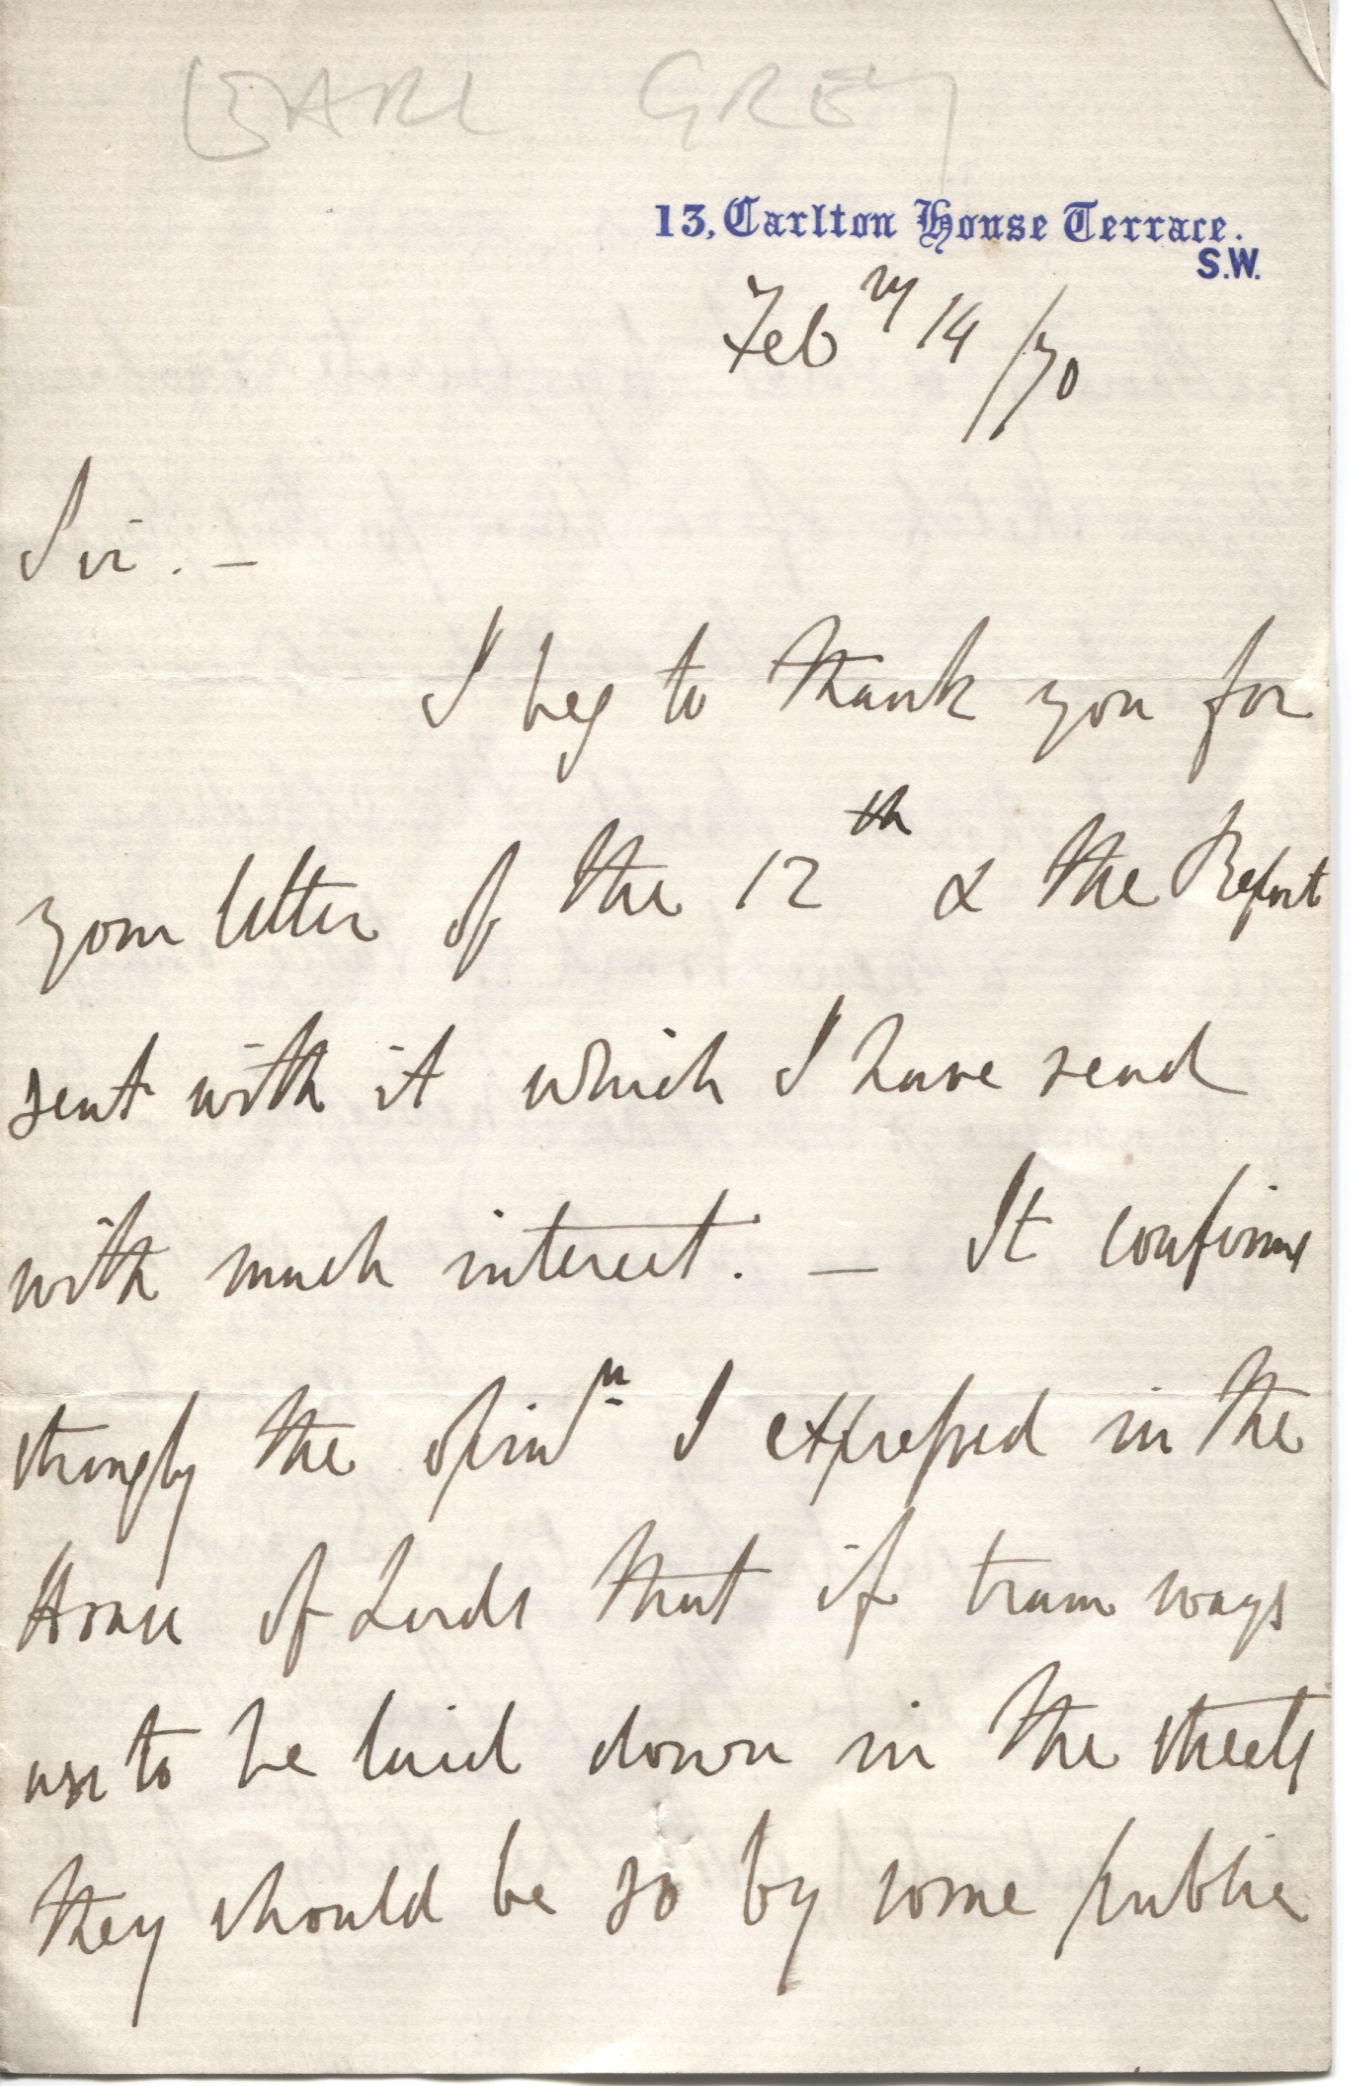 EARL GREY
13, Carlton House Terrace.
S.W.
Feb ry 14 /70
Sir. —
I beg to thank you for
your letter of the 12th & the Report
sent with it which I have read
with much interest. — It confirms
strongly the opinn I expressed in the
House of Lords that if tram ways
are to be laid down in the streets
they should be so by some public